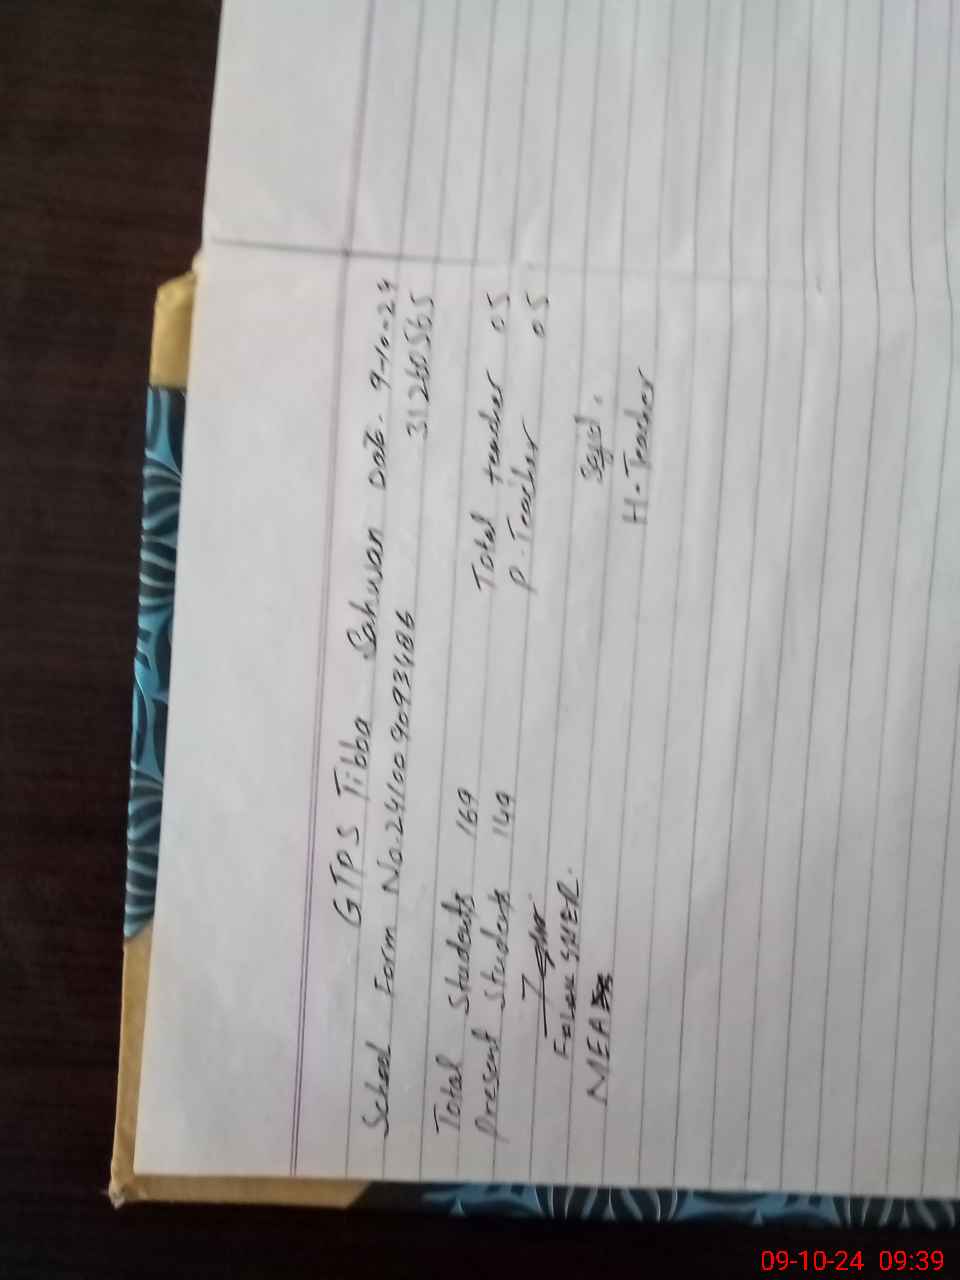 GTPS Tibba Sahwan Date. 9-10-24
School Form No. 24100909093486
31260565
Total Students 169 Total teacher 05
Present Students 149 P. Teacher 05
SHER.
MEA
H. Teacher
09-10-24 09:39